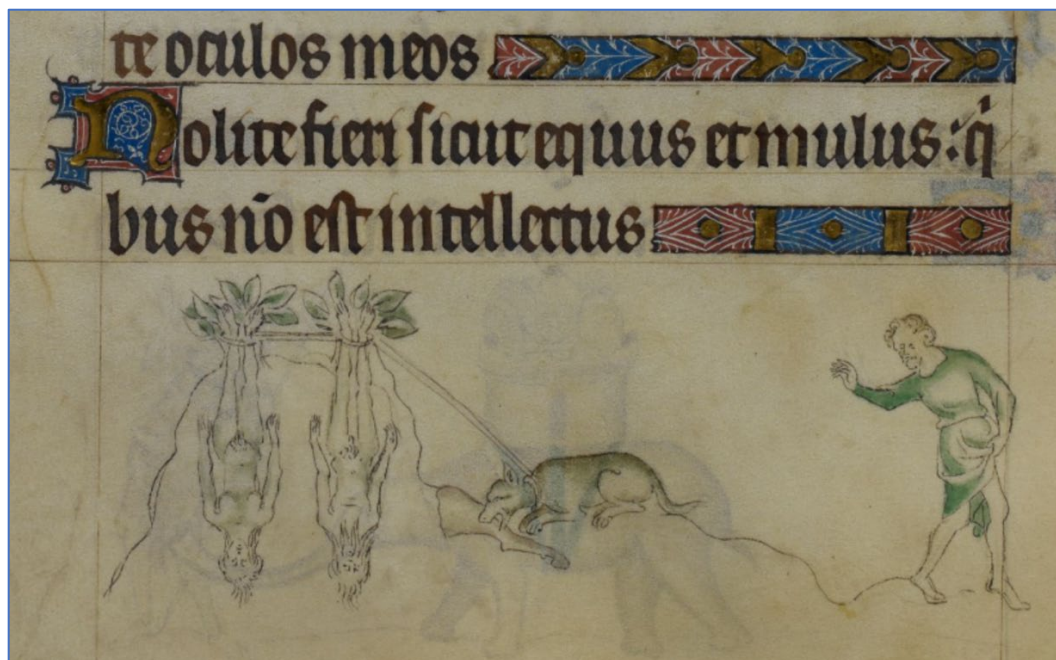 te oculos meos
Nolite fieri sicut equus et mulus: qͥ
bus nō est intellectus